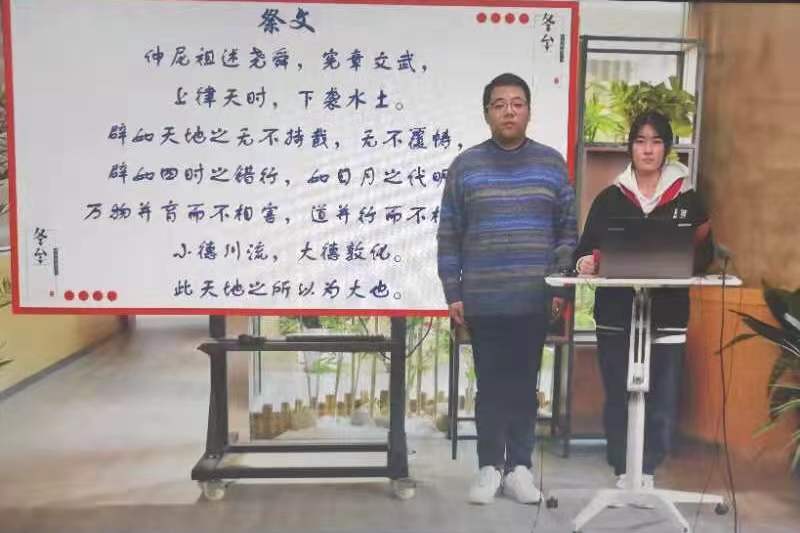 祭文
冬至
仲尼祖述尧舜，宪章文武，
上律天时，下袭水土。
辟如天地之无不持载，无不覆帱，
辟如四时之错行，如日月之代明
万物并育而不相害，道并行而不
小德川流，大德敦化。
此天地之所以为大也。
冬至